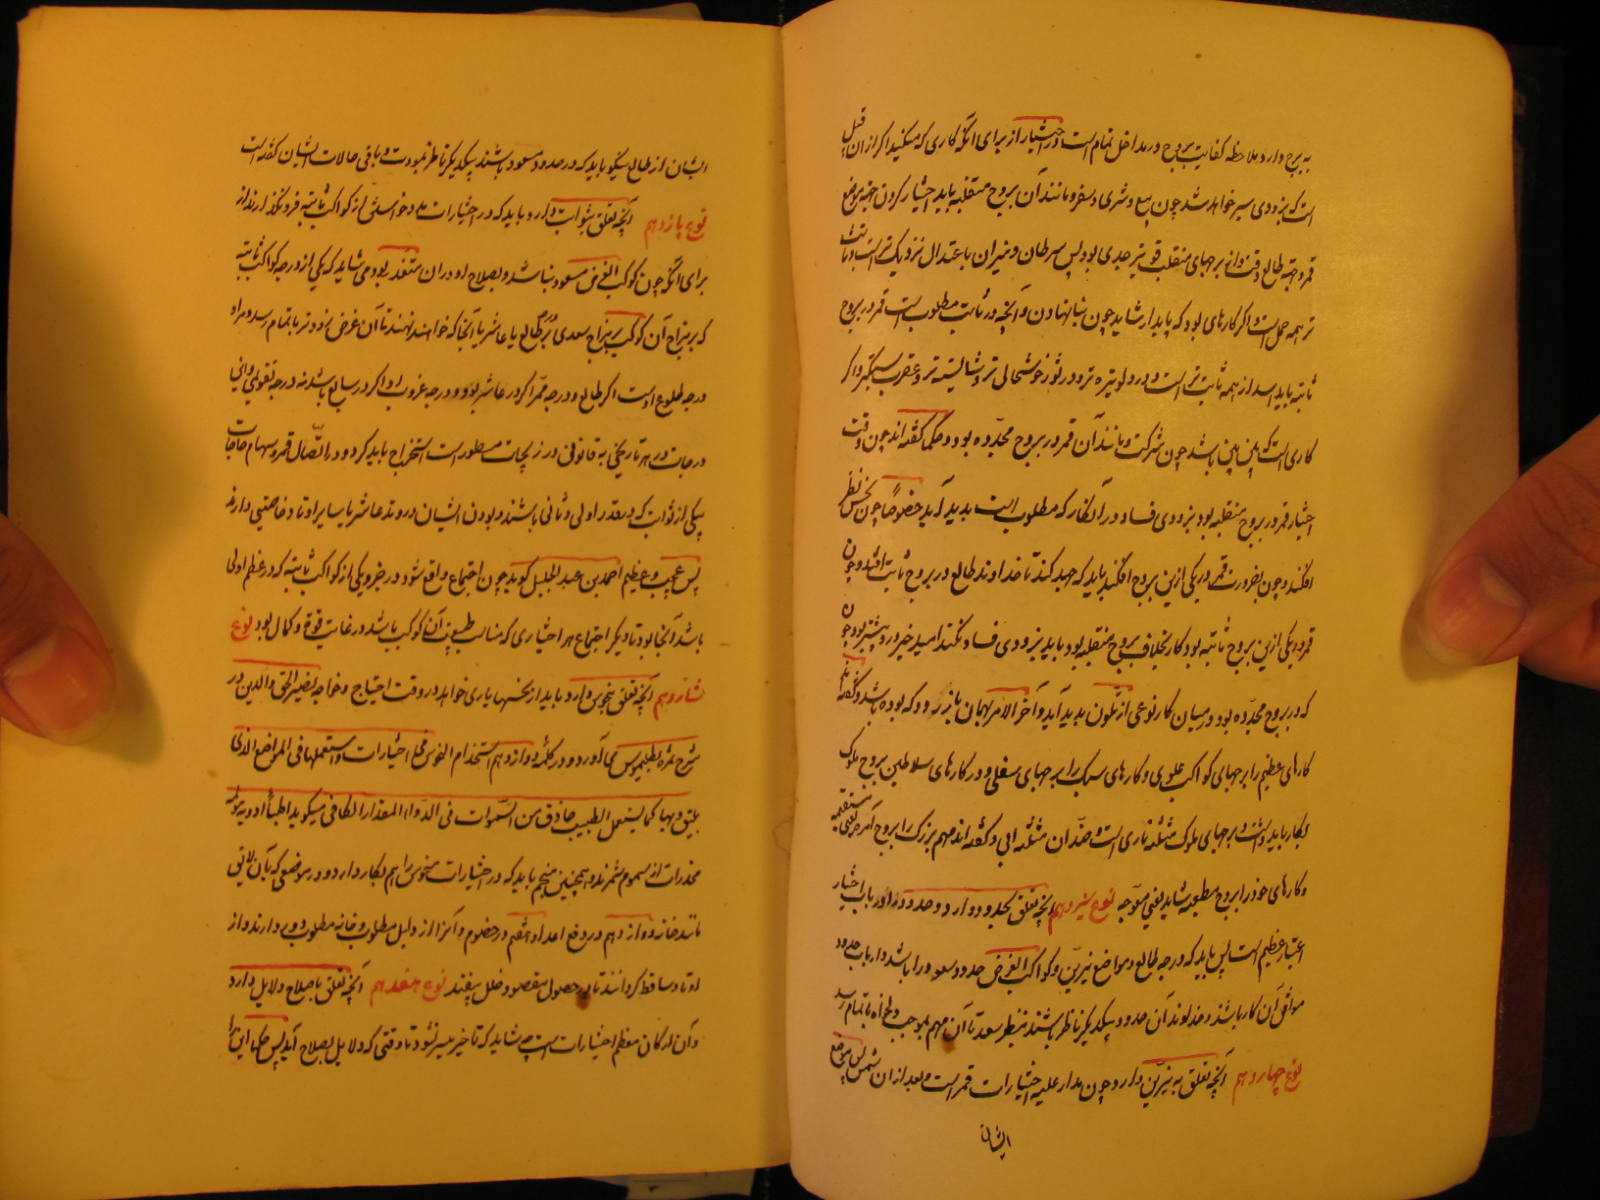 به بروج دارد ملاحظه کیفیت بروج در مداخل تمام است در اختیار از برای آنکه کاری که میکنید اگر از آن قبیل
است که بزودی سپر خواهد شد چون بیع و شری و سفر و مانند آن بروج منقلبه باید اختیار کردن جهة موضع
قمر و جهة طالع وقت و از برجهای منقلب قوی‌تر جدی بود پس سرطان و میزان باعتدال نزدیک‌تر است و ثابت
تر همه حمل است و اگر کارهای بود که پایدار شاید چون بنا نهادن و آنچه در ثابت مطلوب است قمر در بروج
ثابته باید اسد از همه ثابت تر است و در دلو تیره تر و در ثور خوشحالی تر و شایسته تر و عقرب سبکتر و اگر
کاری است که بین بین باشد چون شرکت و مانند آن قمر در بروج مجسده بود و حکما گفته‌اند چون وقت
اختیار قمر در بروج منقلبه بود بزودی فساد در آن کار که مطلوب است پدید آید خصوصاً چون نحس نظر
افکند و چون بضرورت قمر در یکی ازین بروج افکنند باید که جهد کند تا خداوند طالع در بروج ثابت افتد و چون
قمر در یکی ازین بروج ثابته بود کار بخلاف بروج منقلبه بود باید بزودی فساد نکند امید خیر درو بیشتر بود چون
که در بروج مجسده بود در میان کار نوعی از تلون پدید آید و آخر الامر بهمان باز رود که بوده باشد و گفته‌اند
کارهای عظیم را برجهای کواکب علوی و کارهای سبک را برجهای سفلی و در کارهای سلاطین بروج ملوک
بکار باید داشت و برجهای ملوک مثلثه ناری است و ضد آن مثلثه آبی و گفته‌اند مهم بزرگ را بروج آمره یعنی مستقیمه
و کارهای خورد را بروج مطیعه شاید یعنی معوجه نوع سیزدهم آنچه تعلق بحدود دارد و حدود را در باب اختیار
اعتبار عظیم است پس باید که درجه طالع و مواضع نیرین و کواکب الغرض حدود سعود را باشد و ارباب حدود
موافق آن کار باشند و خداوند آن حدود بیکدیگر ناظر باشند بنظر سعد تا آن مهم بموجب دلخواه باتمام رسد
نوع چهاردهم آنچه تعلق به نیرین دارد و چون مدار علیه اختیارات قمر است و بعد از آن شمس پس موضع
ایشان
ایشان از طالع نیکو باید که در حدود مسعود باشند بیکدیگر ناظر بمودت و باقی حالات ایشان گفته است
نوع پانزدهم آنچه تعلق بثوابت دارد باید که در اختیارات مدد خواستن از کواکب ثابته فرو نگذارند از
برای آنکه چون کوکب الغرض مسعود نباشد و بصلاح او در آن متعذر بود می شاید که یکی از درجه کواکب ثابته
که بر مزاج آن کوکب بمزاج سعدی بر طالع یا عاشر یا آنجا که خواهند نهند تا آن غرض زودتر باتمام رسد و مراد
درجه طلوع اوست اگر طالع و درجه ممر اگر در عاشر بود و درجه غروب او اگر در سابع باشد نه درجه تقویمی و این
درجات در هر تاریخی به قانونی در زیجات مسطور است استخراج باید کرد و در اتصال قمر و سهام حاجات
بیکی از ثوابت که در قدر اولی و ثانی باشند و بودن ایشان در وتد عاشر یا سایر اوتاد خاصیتی دارند
بس عجیب و عظیم احمد بن عبد الجلیل گوید چون اجتماع واقع شود در جزو یکی از کواکب ثابته که در عظم اولی
باشد و آنجا بود تا دیگر اجتماع هر اختیاری که مناسب طبیعت آن کوکب باشد در غایت قوة و کمال بود نوع
شانزدهم آنچه تعلق بنحوس دارد باید از نحسها یاری خواهد در وقت احتیاج و خواجه نصیر الحق والدین در
شرح ثمره بطلیموس می آورد و در کلمه دوازدهم استخدام النحوس فی اختیارات و استعملها فی المواضع الذی
یلیق بها کما یستعمل الطبیب حاذق من السموات فی الدواء المقدار الکافی میگوید اطباء ادویه را
مخدرات از سموم شمرند و همچنین منجم باید که در اختیارات نحوس را هم بکار دارد و در موضعی که بآن لایق
مانند خانه دوازدهم در دفع اعدا و هشتم در خصوم و آنرا از دلیل مطلوب و خانه مطلوب دور دارند و از
اوتاد ساقط گردانند تا در حصول مقصود خلل نیفتد نوع هفدهم آنچه تعلق باصلاح دلایل دارد
و آن از ارکان معظم اختیارات است و میشاید که تا خیر میسر نشود تا وقتی که دلایل بصلاح آید پس حکما این را